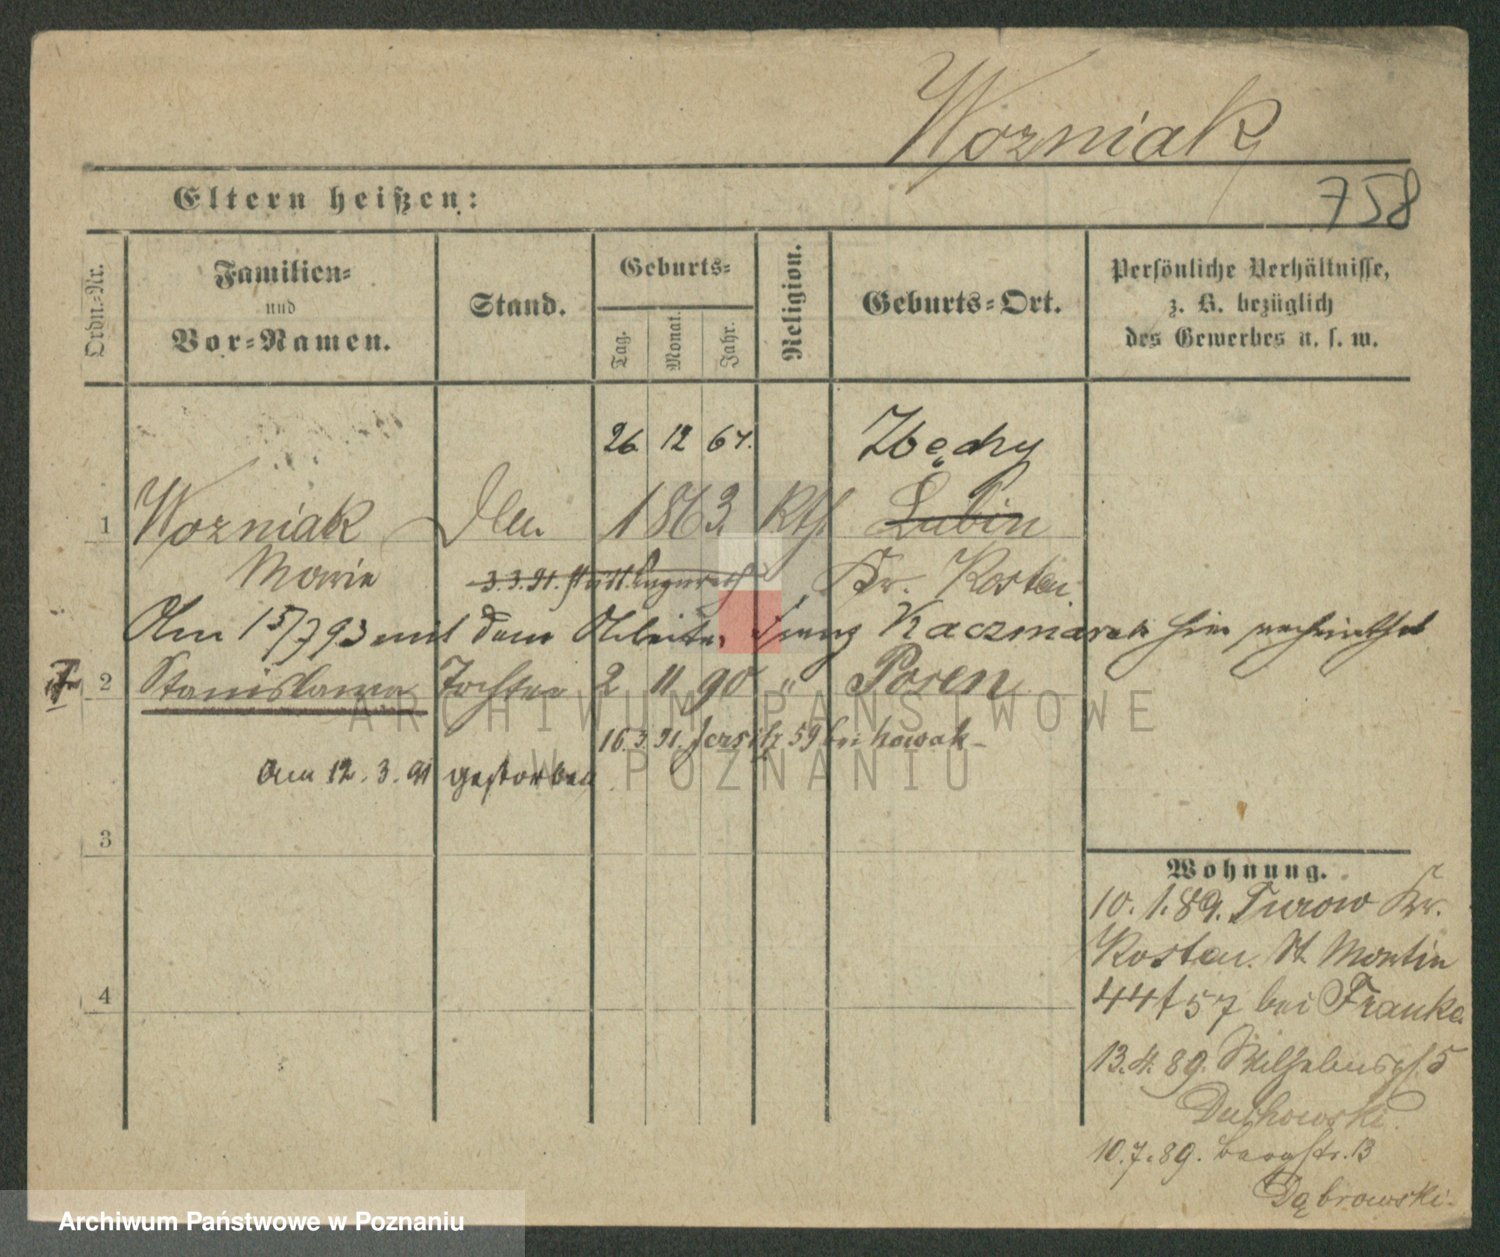 Wozniak
Eltern heißen:
758
Ordn.-Nr.
Familien-
und
Vor-Namen.
Stand.
Geburts-
Tag.
Monat.
Jahr.
Religion.
Geburts-Ort.
Persönliche Verhältnisse,
z. B. bezüglich
des Gewerbes u. s. w.
26 12 67. Zbęchy
1 Wozniak 1863 Kth Lubin
Marie 3.3.91. Kr. Kosten.
Am 15/7 93 mit dem Arbeiter Franz Kaczmarek hier verheirathet
2 Stanislawa Tochter 2 11 90 " Posen
16.3.91. Jersitz 59 bei Nowak
Am 12.3.91 gestorben
3
4
Wohnung.
10.1.89. Turow Kr.
Kosten. St Martin
44/57 bei Franke
13.4.89. Wilhelmspl. 5
10.7.89. Bergstr. 13
Dąbrowski.
ARCHIWUM PAŃSTWOWE
W POZNANIU
Archiwum Państwowe w Poznaniu